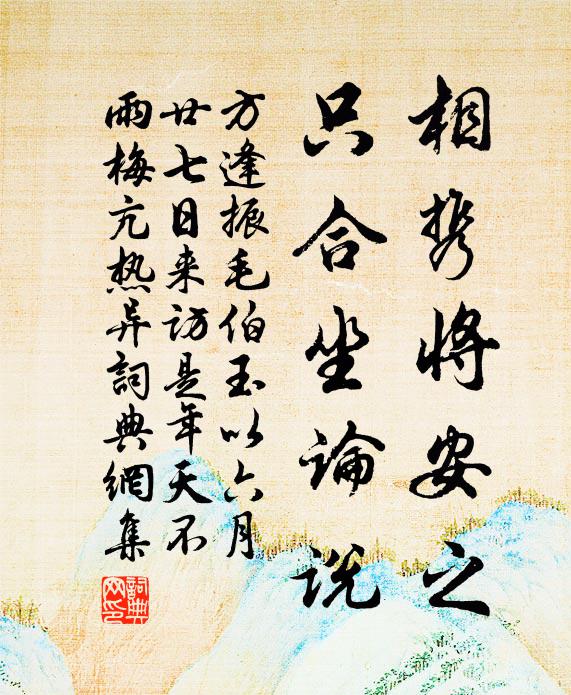 相携将安之
只合坐論説
方逢振毛伯玉以六月
廿七日来访是年天不
雨梅亢热异詞典網集
詞典網印